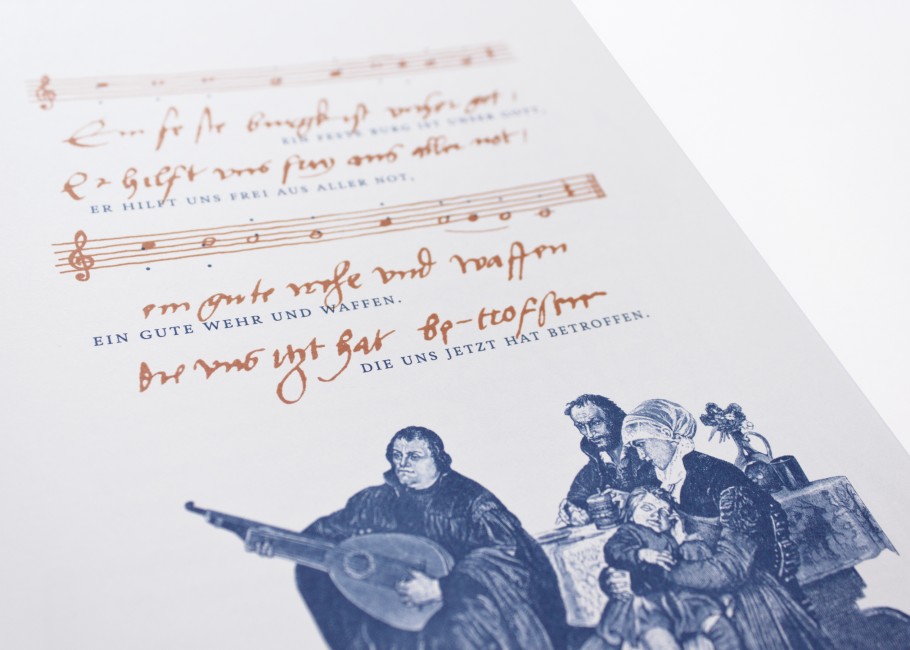 Ein feste burgk ist unser got!
EIN FESTE BURG IST UNSER GOTT,
Er hilfft uns frey aus aller not!
ER HILFT UNS FREI AUS ALLER NOT,
ein gute wehr und waffen
EIN GUTE WEHR UND WAFFEN.
die uns itzt hat be-troffen
DIE UNS JETZT HAT BETROFFEN.